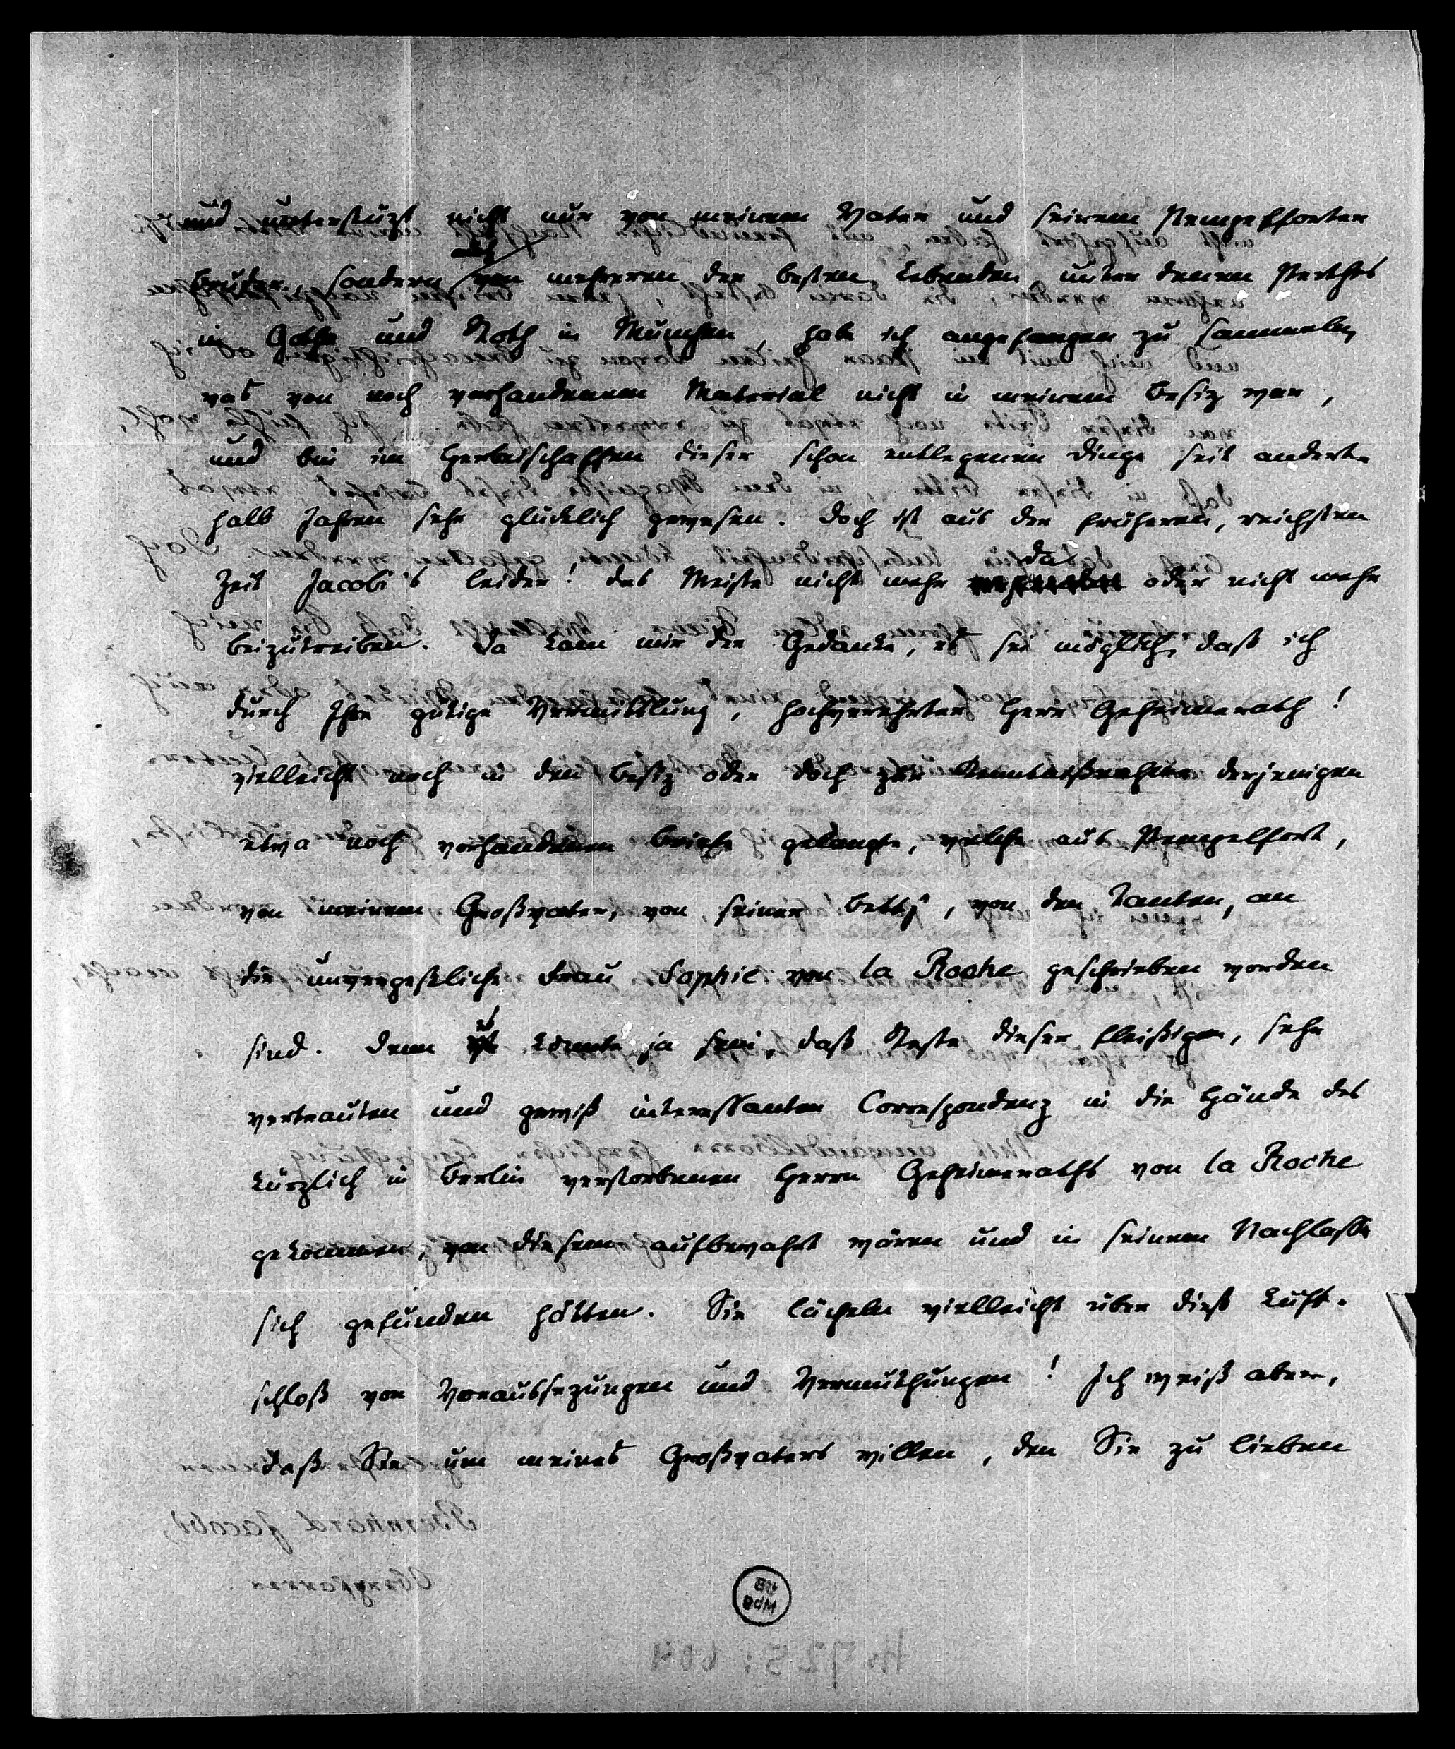 und unterstüzt nicht nur von meinem Vater und seinem Pempelforter
Bruder, sondern von mehreren der besten Lebenden unter denen Perthes
in Gotha und Roth in München hab ich angefangen zu sammeln,
was von noch vorhandenem Material nicht in meinem Besiz war,
und bin im Herbeischaffen dieser schon entlegenen Dinge seit andert-
halb Jahren sehr glücklich gewesen. Doch ist aus der früheren, reichsten
Zeit Jacobi's leider! das Meiste nicht mehr da oder nicht mehr
beizutreiben. Da kam mir der Gedanke, es sei möglich, daß ich
durch Ihre gütige Vermittlung, hochverehrter Herr Geheimerath!
vielleicht noch in den Besiz oder doch zur Kenntnißnahme derjenigen
etwa noch vorhandenen Briefe gelangte, welche aus Pempelfort,
von meinem Großvater, von seiner Betty, von den Tanten, an
die unvergeßliche Frau Sophie von la Roche geschrieben worden
sind. Denn es könnte ja sein, daß Reste dieser fleißigen, sehr
vertrauten und gewiß interessanten Correspondenz in die Hände des
kürzlich in Berlin verstorbenen Herrn Geheimeraths von la Roche
gekommen, von diesem aufbewahrt wären und in seinem Nachlasse
sich gefunden hätten. Sie lächeln vielleicht über dieß Luft-
schloß von Voraussezungen und Vermuthungen! Ich weiß aber,
daß Sie um meines Großvaters willen, den Sie zu lieben